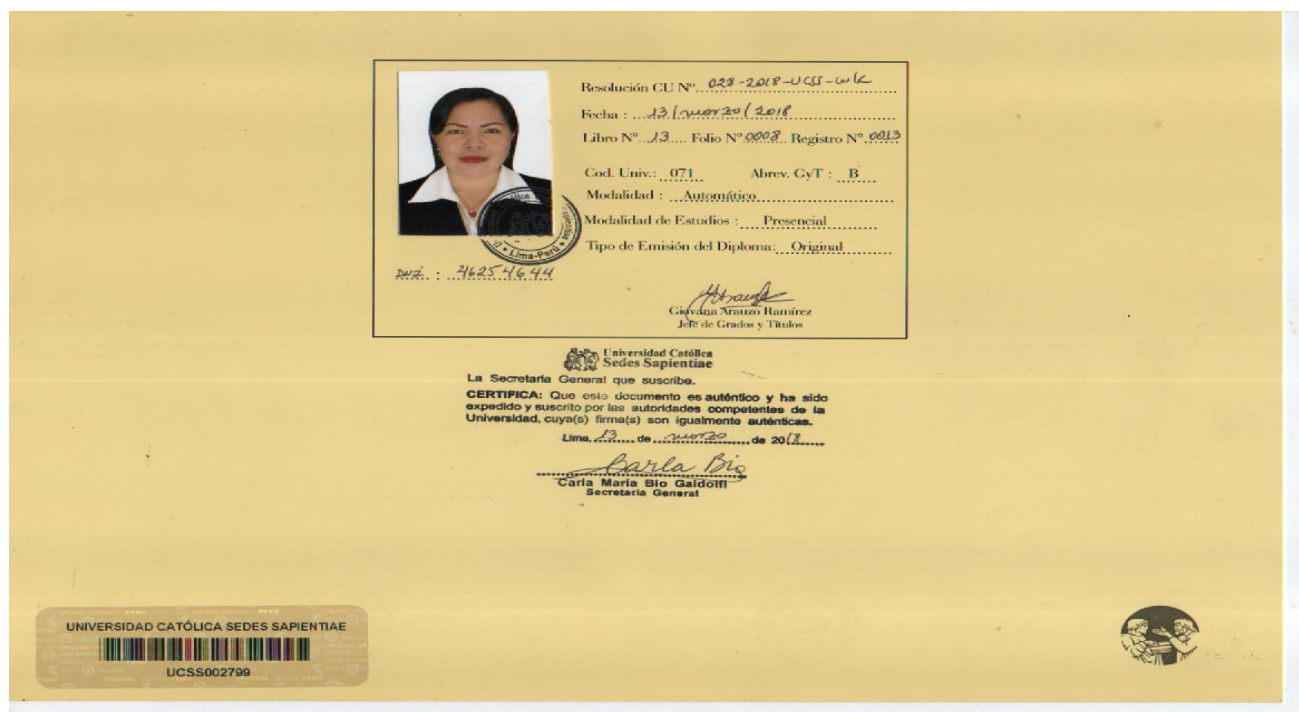 Resolución CU Nº 028-2018-UCSS-CU/R
Fecha : 13/marzo/2018
Libro Nº 13 Folio Nº 0008 Registro Nº 0013
Cod. Univ.: 071 Abrev. GyT : B
Modalidad : Automático
Modalidad de Estudios : Presencial
Tipo de Emisión del Diploma: Original
Lima-Perú
DNI : 46254644
Giovana Arauzo Ramírez
Jefe de Grados y Títulos
Universidad Católica
Sedes Sapientiae
La Secretaria General que suscribe.
CERTIFICA: Que este documento es auténtico y ha sido
expedido y suscrito por las autoridades competentes de la
Universidad, cuya(s) firma(s) son igualmente auténticas.
Lima, 13 de marzo de 2018
Carla Bio
Carla Maria Bio Galdolfi
Secretaria General
UNIVERSIDAD CATÓLICA SEDES SAPIENTIAE
UCSS002799